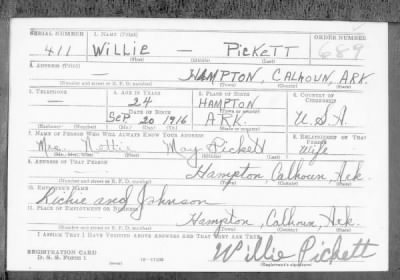 SERIAL NUMBER 1. NAME (Print) ORDER NUMBER
411 WILLIE — PICKETT 689
(First) (Middle) (Last)
2. ADDRESS (Print)
— HAMPTON, CALHOUN, ARK.
(Number and street or R. F. D. number) (Town) (County) (State)
3. TELEPHONE 4. AGE IN YEARS 5. PLACE OF BIRTH 6. COUNTRY OF CITIZENSHIP
— 24 HAMPTON
DATE OF BIRTH (Town or county)
SEP. 20 1916 ARK. U.S.A.
(Mo.) (Day) (Yr.) (State or country)
7. NAME OF PERSON WHO WILL ALWAYS KNOW YOUR ADDRESS 8. RELATIONSHIP OF THAT PERSON
Mrs. Hottie May Pickett Wife
(Mr., Mrs., Miss) (First) (Middle) (Last)
9. ADDRESS OF THAT PERSON
Hampton Calhoun, Ark.
(Number and street or R. F. D. number) (Town) (County) (State)
10. EMPLOYER'S NAME
Richie and Johnson
11. PLACE OF EMPLOYMENT OR BUSINESS
Hampton, Calhoun, Ark.
(Number and street or R. F. D. number) (Town) (County) (State)
I AFFIRM THAT I HAVE VERIFIED ABOVE ANSWERS AND THAT THEY ARE TRUE.
REGISTRATION CARD Willie Pickett
D. S. S. FORM 1 (over) 16—17105 (Registrant's signature)